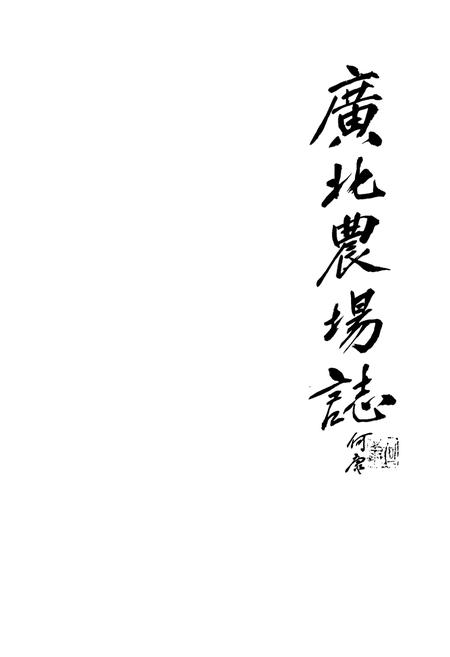 廣北農場誌
何康